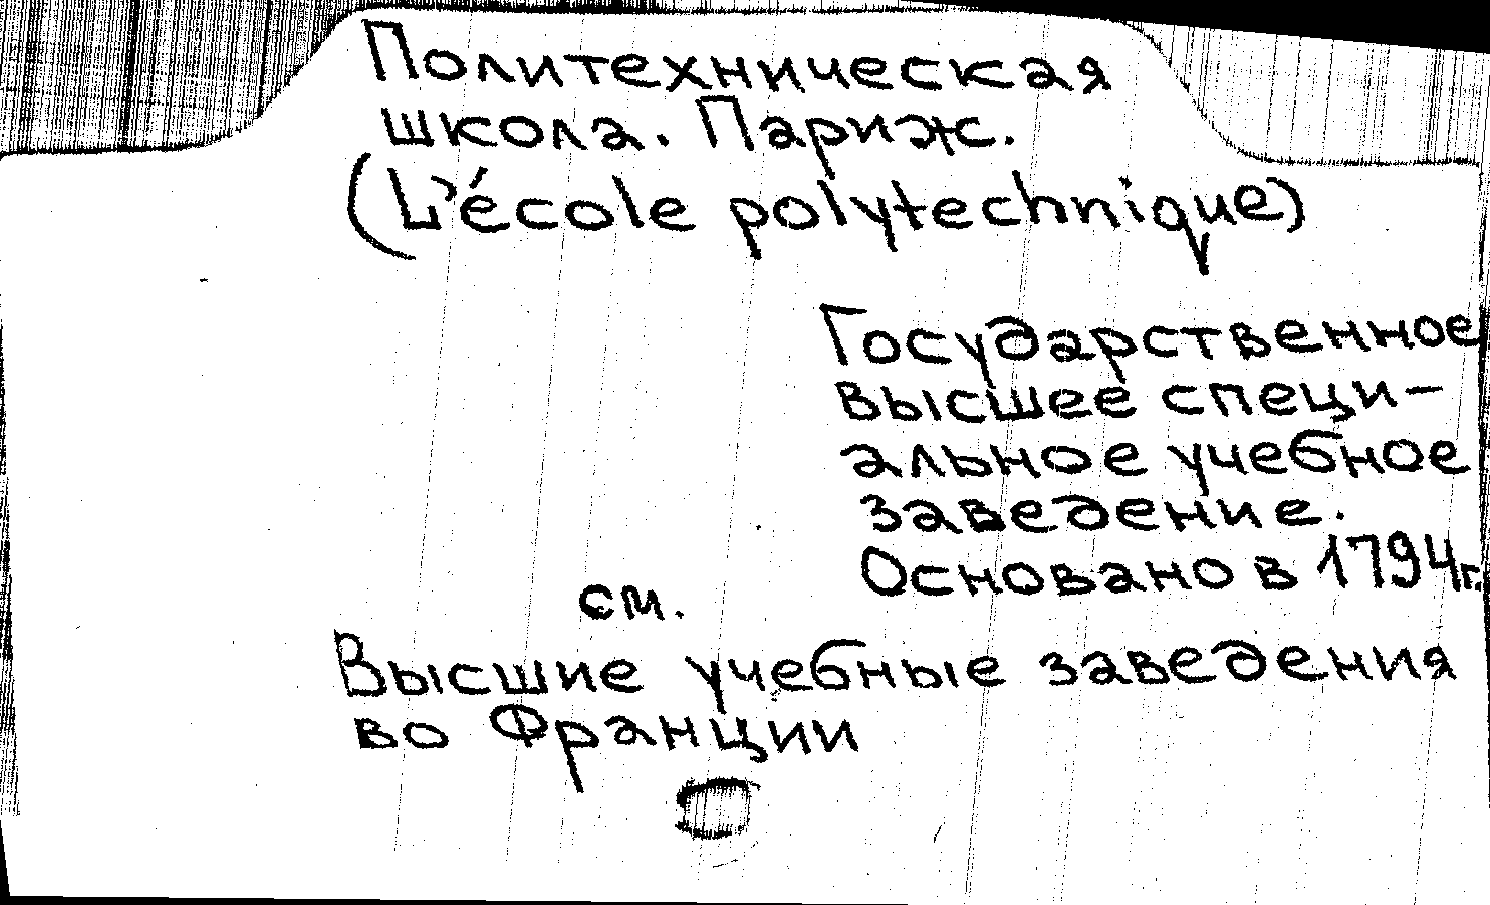 Политехническая
школа. Париж.
(L'école polytechnique)
Государственное
высшее специ-
альное учебное
заведение.
Основано в 1794г.
см.
Высшие учебные заведения
во Франции